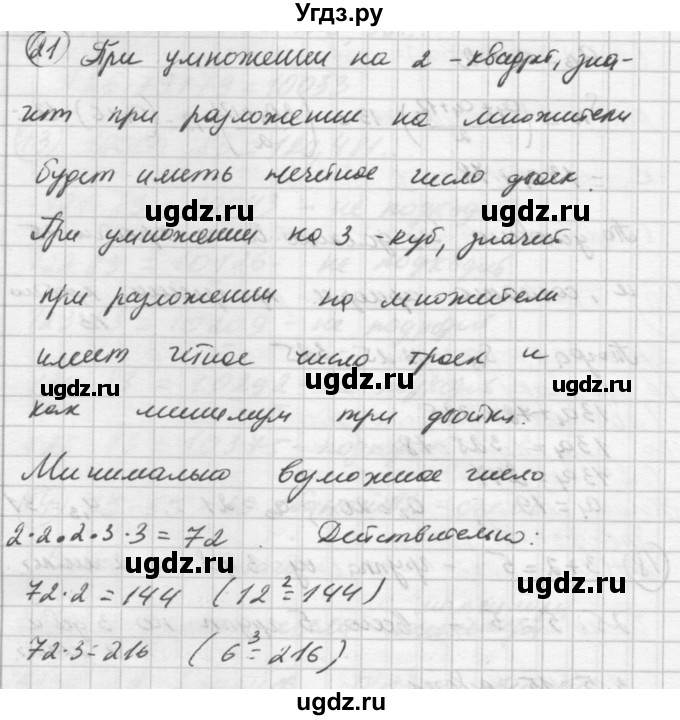 Угдз.ру
21 При умножении на 2 - квадрат, зна-
чит при разложении на множители
будет иметь нечётное число двоек.
ugdz.ru ugdz.ru
При умножении на 3 - куб, значит
при разложении на множители
имеет чётное число троек и
ugdz.ru ugdz.ru ugdz.ru
как минимум три двойки.
Минимально возможное число
2·2·2·3·3=72. Действительно:
ugdz.ru ugdz.ru
72·2=144 (12²=144)
72·3=216 (6³=216)
ugdz.ru ugdz.ru